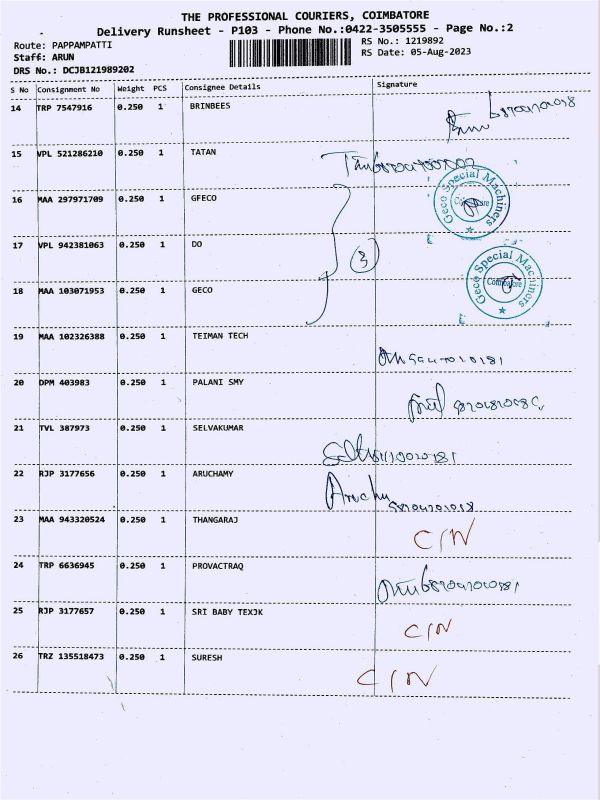 THE PROFESSIONAL COURIERS, COIMBATORE
Delivery Runsheet - P103 - Phone No.:0422-3505555 - Page No.:2
Route: PAPPAMPATTI
RS No.: 1219892
Staff: ARUN
RS Date: 05-Aug-2023
DRS No.: DCJB121989202
S No Consignment No Weight PCS Consignee Details Signature
14 TRP 7547916 0.250 1 BRINBEES
15 VPL 521286210 0.250 1 TATAN
16 MAA 297971709 0.250 1 GFECO
Geco Special Machiners
Coimbatore
17 VPL 942381063 0.250 1 DO
3
Geco Special Machiners
Coimbatore
18 MAA 103071953 0.250 1 GECO
19 MAA 102326388 0.250 1 TEIMAN TECH
20 DPM 403983 0.250 1 PALANI SMY
21 TVL 387973 0.250 1 SELVAKUMAR
22 RJP 3177656 0.250 1 ARUCHAMY
Aruchu
23 MAA 943320524 0.250 1 THANGARAJ
C/N
24 TRP 6636945 0.250 1 PROVACTRAQ
25 RJP 3177657 0.250 1 SRI BABY TEXJK
C/N
26 TRZ 135518473 0.250 1 SURESH
C/N